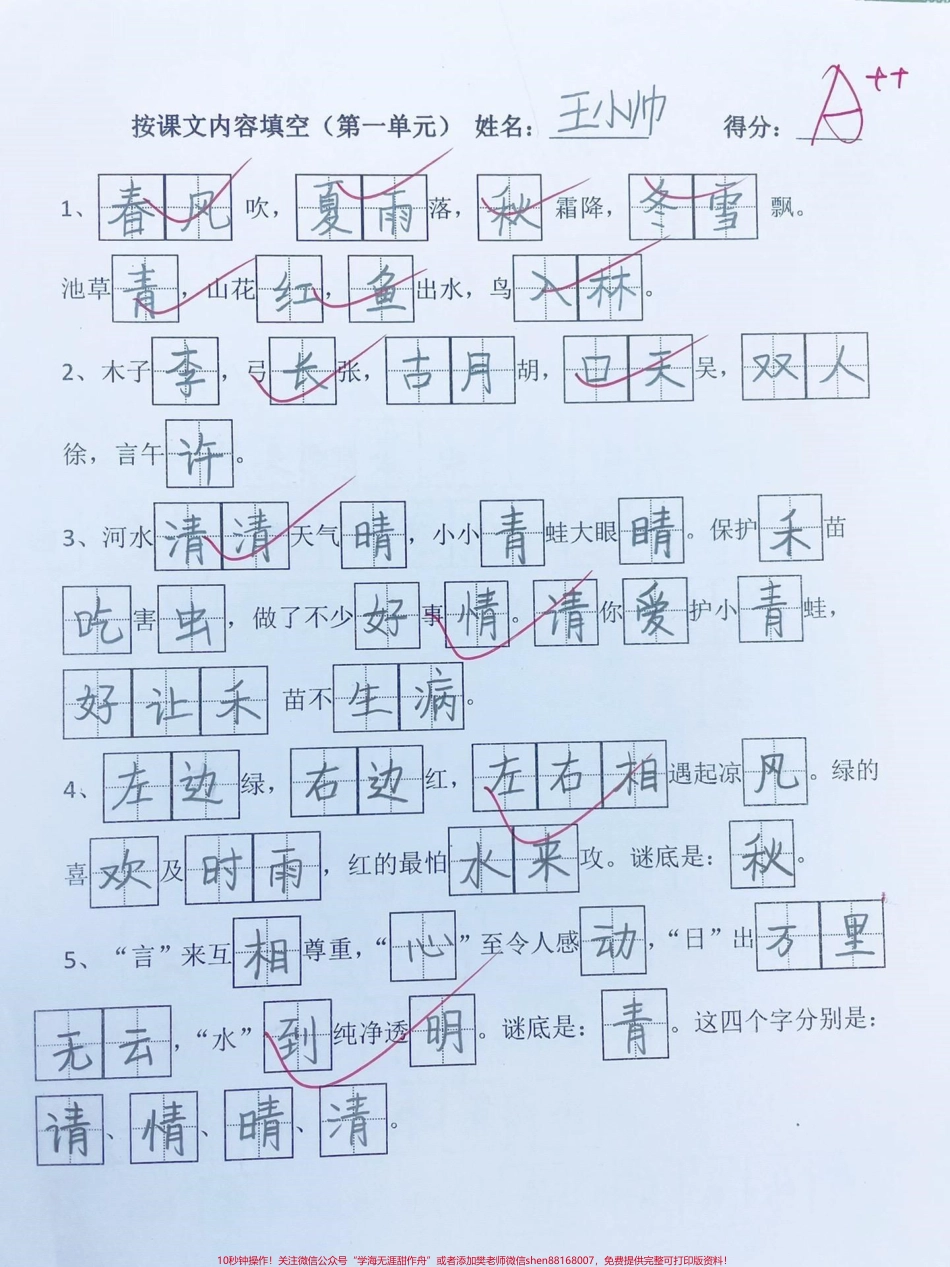 按课文内容填空（第一单元） 姓名：王小帅 得分：A++
1、春风吹，夏雨落，秋霜降，冬雪飘。
池草青，山花红，鱼出水，鸟入林。
2、木子李，弓长张，古月胡，口天吴，双人
徐，言午许。
3、河水清清天气晴，小小青蛙大眼睛。保护禾苗
吃害虫，做了不少好事情。请你爱护小青蛙，
好让禾苗不生病。
4、左边绿，右边红，左右相遇起凉风。绿的
喜欢及时雨，红的最怕水来攻。谜底是：秋。
5、“言”来互相尊重，“心”至令人感动，“日”出万里
无云，“水”到纯净透明。谜底是：青。这四个字分别是：
请、情、晴、清。
10秒钟操作！关注微信公众号“学海无涯甜作舟”或者添加樊老师微信shen88168007，免费提供完整可打印版资料！